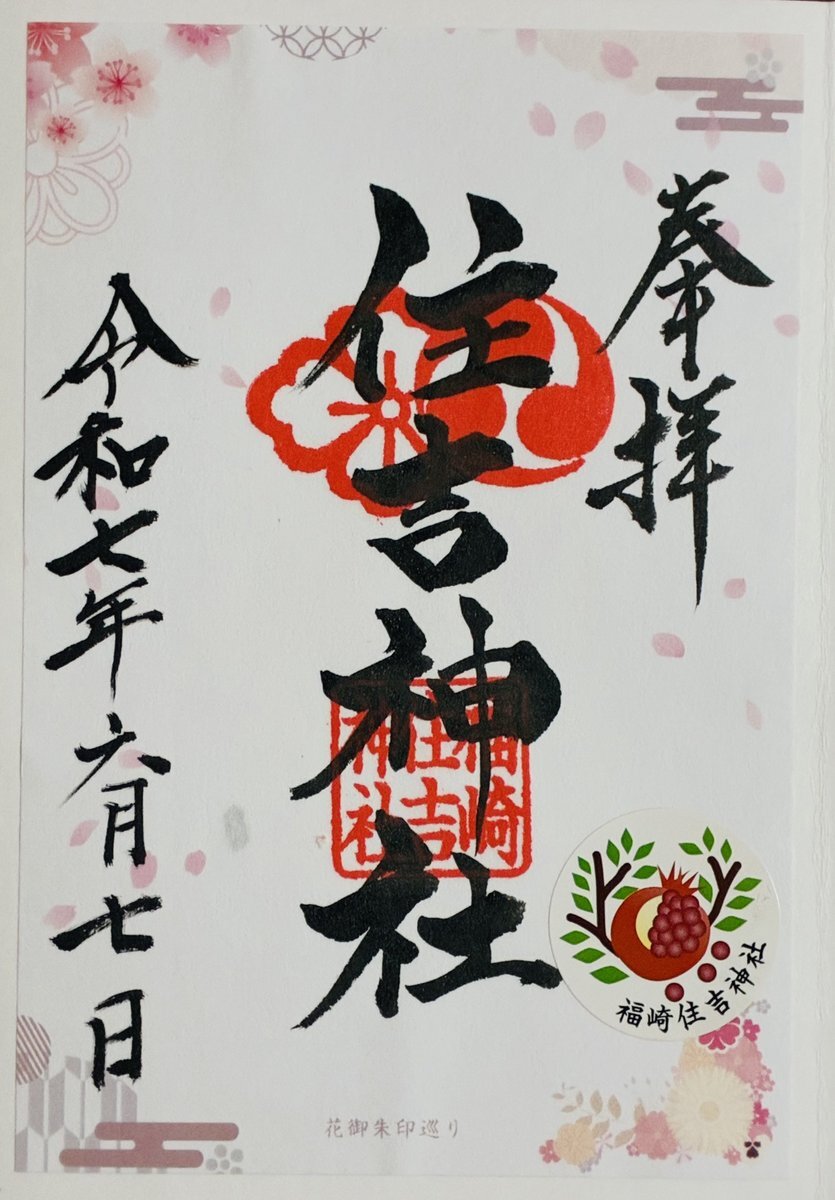 奉拝
住吉神社
福崎
住吉
神社
令和七年六月七日
福崎住吉神社
花御朱印巡り